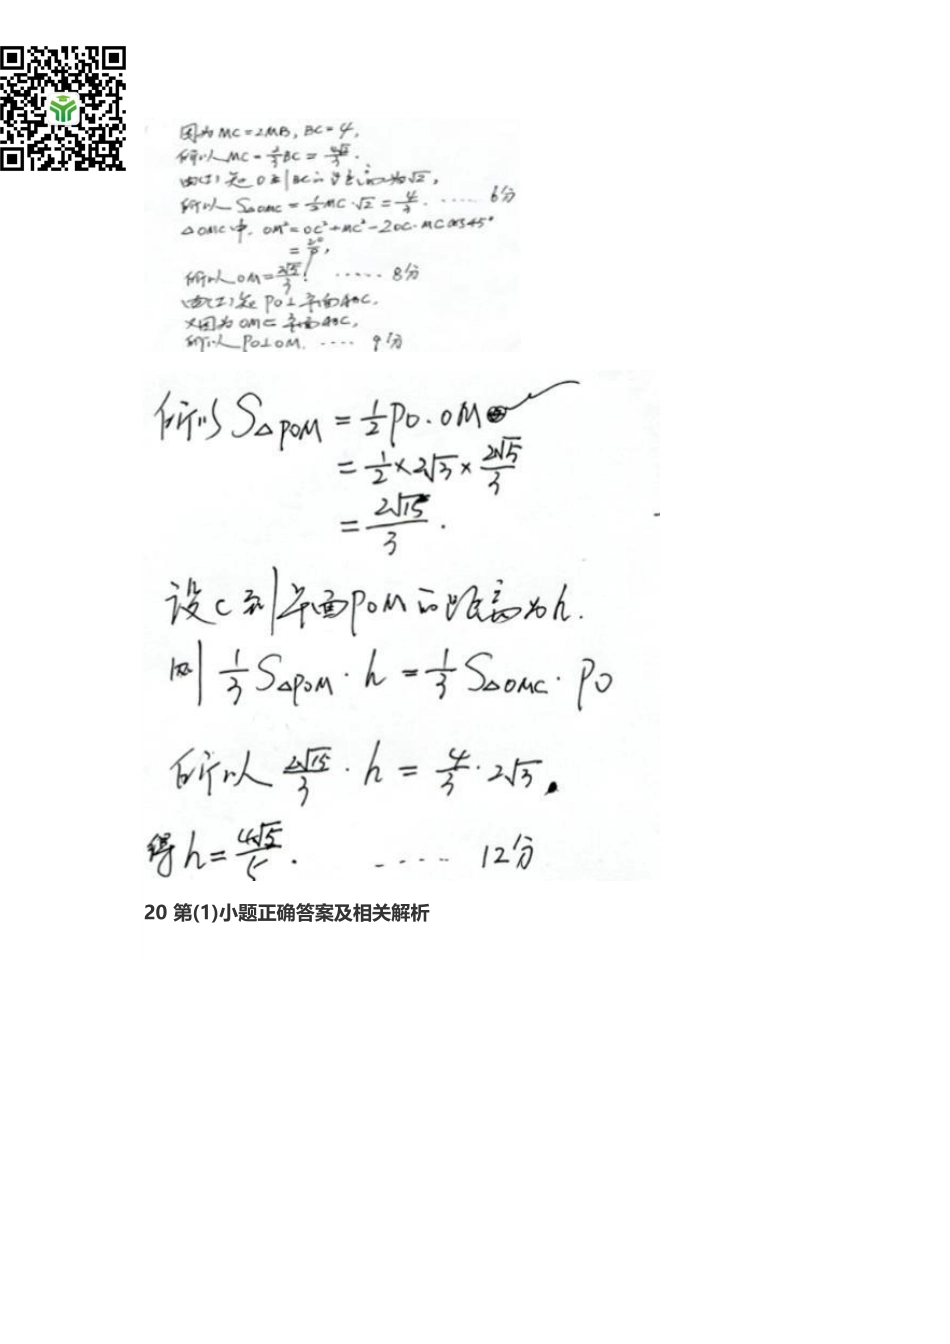 因为MC=2MB, BC=4,
所以MC=2/3BC=4√2/3.
由(1)知O到BC的距离为√2,
所以S△OMC=1/2MC·√2=4/3. ..... 6分
△OMC中, OM²=OC²+MC²-2OC·MCcos45°
=20/9,
所以OM=2√5/3. ..... 8分
由(1)知PO⊥平面ABC,
又因为OM⊂平面ABC,
所以PO⊥OM. .... 9分
所以S△POM=1/2PO·OM
=1/2×2√3×2√5/3
=2√15/3.
设C到平面POM的距离为h.
则1/3S△POM·h=1/3S△OMC·PO
所以2√15/3·h=4/3·2√3.
得h=4√5/5. ..... 12分
20 第(1)小题正确答案及相关解析